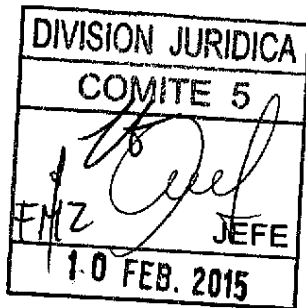 DIVISION JURIDICA
COMITE 5
FMZ
JEFE
10 FEB. 2015